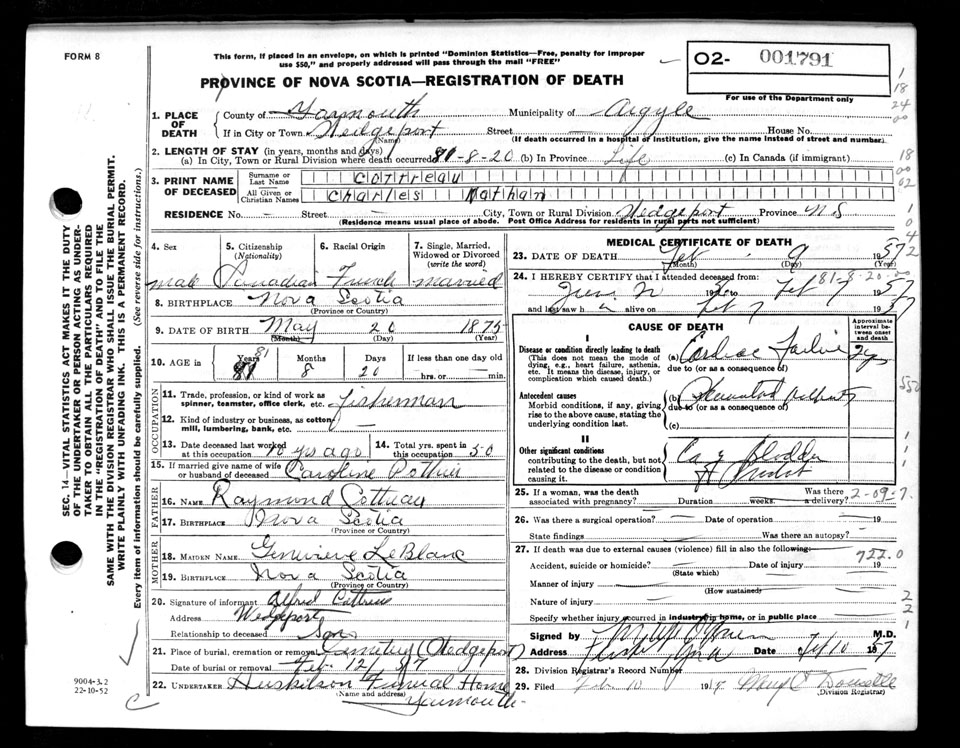 FORM 8
This form, if placed in an envelope, on which is printed "Dominion Statistics—Free, penalty for improper
use $50," and properly addressed will pass through the mail "FREE"
02- 001791
For use of the Department only
PROVINCE OF NOVA SCOTIA—REGISTRATION OF DEATH
1. PLACE OF DEATH
County of Yarmouth Municipality of Argyle
If in City or Town Wedgeport Street — House No.
(Name) (If death occurred in a hospital or institution, give the name instead of street and number)
2. LENGTH OF STAY (in years, months and days)
(a) In City, Town or Rural Division where death occurred 81-8-20 (b) In Province Life (c) In Canada (if immigrant)
3. PRINT NAME OF DECEASED
Surname or Last Name Cottreau
All Given or Christian Names Charles Nathan
RESIDENCE No. — Street — City, Town or Rural Division Wedgeport Province N.S
(Residence means usual place of abode. Post Office Address for residents in rural parts not sufficient)
4. Sex 5. Citizenship (Nationality) 6. Racial Origin 7. Single, Married, Widowed or Divorced (write the word)
male Canadian French married
8. BIRTHPLACE Nova Scotia
(Province or Country)
9. DATE OF BIRTH May 20 1875
(Month) (Day) (Year)
10. AGE in Years 81 Months 8 Days 20 If less than one day old
hrs. or min.
OCCUPATION
11. Trade, profession, or kind of work as spinner, teamster, office clerk, etc. Fisherman
12. Kind of industry or business, as cotton mill, lumbering, bank, etc. —
13. Date deceased last worked at this occupation 10 yrs ago 14. Total yrs. spent in this occupation 50
15. If married give name of wife or husband of deceased Caroline Pothier
FATHER
16. NAME Raymond Cottreau
17. BIRTHPLACE Nova Scotia
(Province or Country)
MOTHER
18. MAIDEN NAME Genevieve LeBlanc
19. BIRTHPLACE Nova Scotia
(Province or Country)
20. Signature of informant Alfred Cottreau
Address Wedgeport
Relationship to deceased Son
21. Place of burial, cremation or removal Cemetery (Wedgeport)
Date of burial or removal Feb. 12/57
22. UNDERTAKER Huskilson Funeral Home
(Name and address) Yarmouth
MEDICAL CERTIFICATE OF DEATH
23. DATE OF DEATH Feb. 9 1957
(Month) (Day) (Year)
81-8-20
24. I HEREBY CERTIFY that I attended deceased from:
Feb 7 1957
and last saw h alive on Feb 7 1957
CAUSE OF DEATH
Approximate interval between onset and death
I
Disease or condition directly leading to death
(This does not mean the mode of dying, e.g., heart failure, asthenia, etc. It means the disease, injury, or complication which caused death.)
(a) Cardiac Failure
due to (or as a consequence of)
Antecedent causes
Morbid conditions, if any, giving rise to the above cause, stating the underlying condition last.
(b)
due to (or as a consequence of)
(c)
II
Other significant conditions
contributing to the death, but not related to the disease or condition causing it.
Ca of Bladder
25. If a woman, was the death associated with pregnancy? Duration weeks. Was there a delivery?
26. Was there a surgical operation? Date of operation 19
State findings Was there an autopsy?
27. If death was due to external causes (violence) fill in also the following: 722.0
Accident, suicide or homicide? Date of injury 19
(State which)
Manner of injury
(How sustained)
Nature of injury
Specify whether injury occurred in industry, in home, or in public place
Signed by M.D.
Address Date 1957
28. Division Registrar's Record Number
29. Filed Feb. 10 19
(Division Registrar)
SEC. 14—VITAL STATISTICS ACT MAKES IT THE DUTY
OF THE UNDERTAKER OR PERSON ACTING AS UNDER-
TAKER TO OBTAIN ALL THE PARTICULARS REQUIRED
IN THE "REGISTRATION OF DEATH" AND TO FILE THE
SAME WITH THE DIVISION REGISTRAR WHO SHALL ISSUE THE BURIAL PERMIT.
WRITE PLAINLY WITH UNFADING INK. THIS IS A PERMANENT RECORD.
Every item of information should be carefully supplied. (See reverse side for instructions.)
9004-3.2
22-10-52